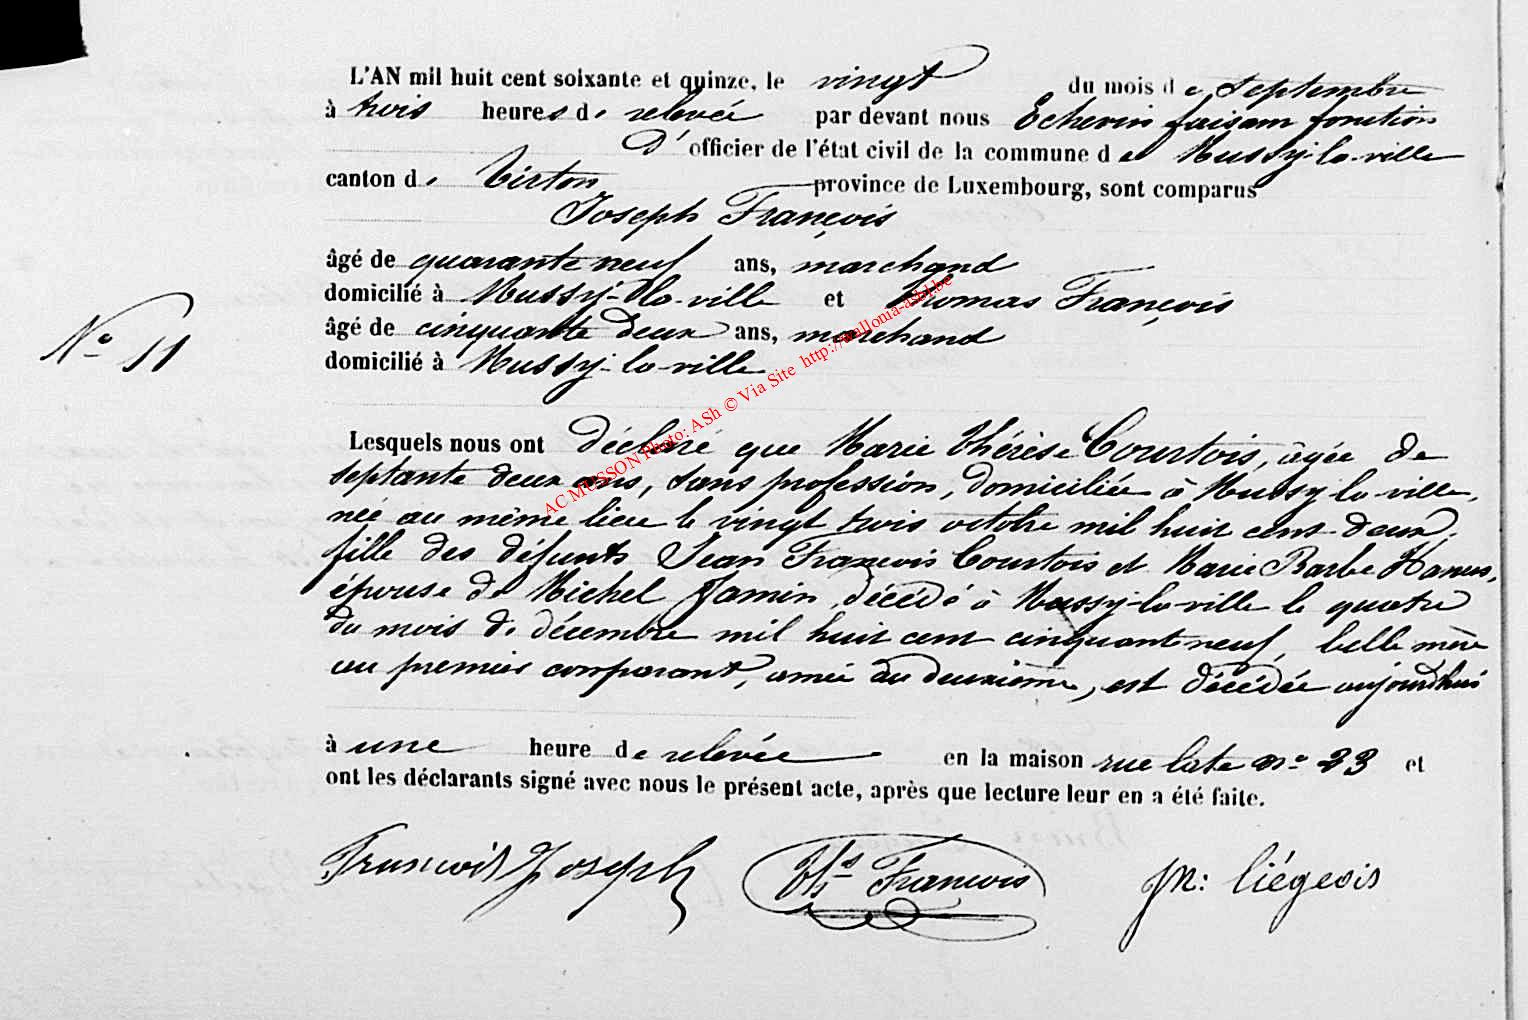 L'AN mil huit cent soixante et quinze, le vingt du mois de septembre
à trois heures de relevée par devant nous Echevin faisant fonction
D'officier de l'état civil de la commune de Mussy-la-ville
canton de Virton province de Luxembourg, sont comparus
Joseph François
âgé de quarante neuf ans, marchand
domicilié à Mussy-la-ville et Thomas François
âgé de cinquante deux ans, marchand
N° 11
domicilié à Mussy-la-ville
Lesquels nous ont déclaré que Marie Thérèse Courtois, agée de
septante deux ans, sans profession, domiciliée à Mussy-la-ville,
née au même lieu le vingt trois octobre mil huit cent deux,
fille des défunts Jean François Courtois et Marie Barbe Hanus,
épouse de Michel Jamin, décédé à Mussy-la-ville le quatre
du mois de décembre mil huit cent cinquante neuf, belle mère
au premier comparant, amie du deuxième, est décédée aujourd'hui
à une heure de relevée en la maison rue n° 23 et
ont les déclarants signé avec nous le présent acte, après que lecture leur en a été faite.
François Joseph Ths François JN: Liégeois
AC MUSSON Photo: ASh © Via Site http://wallonia-asbl.be